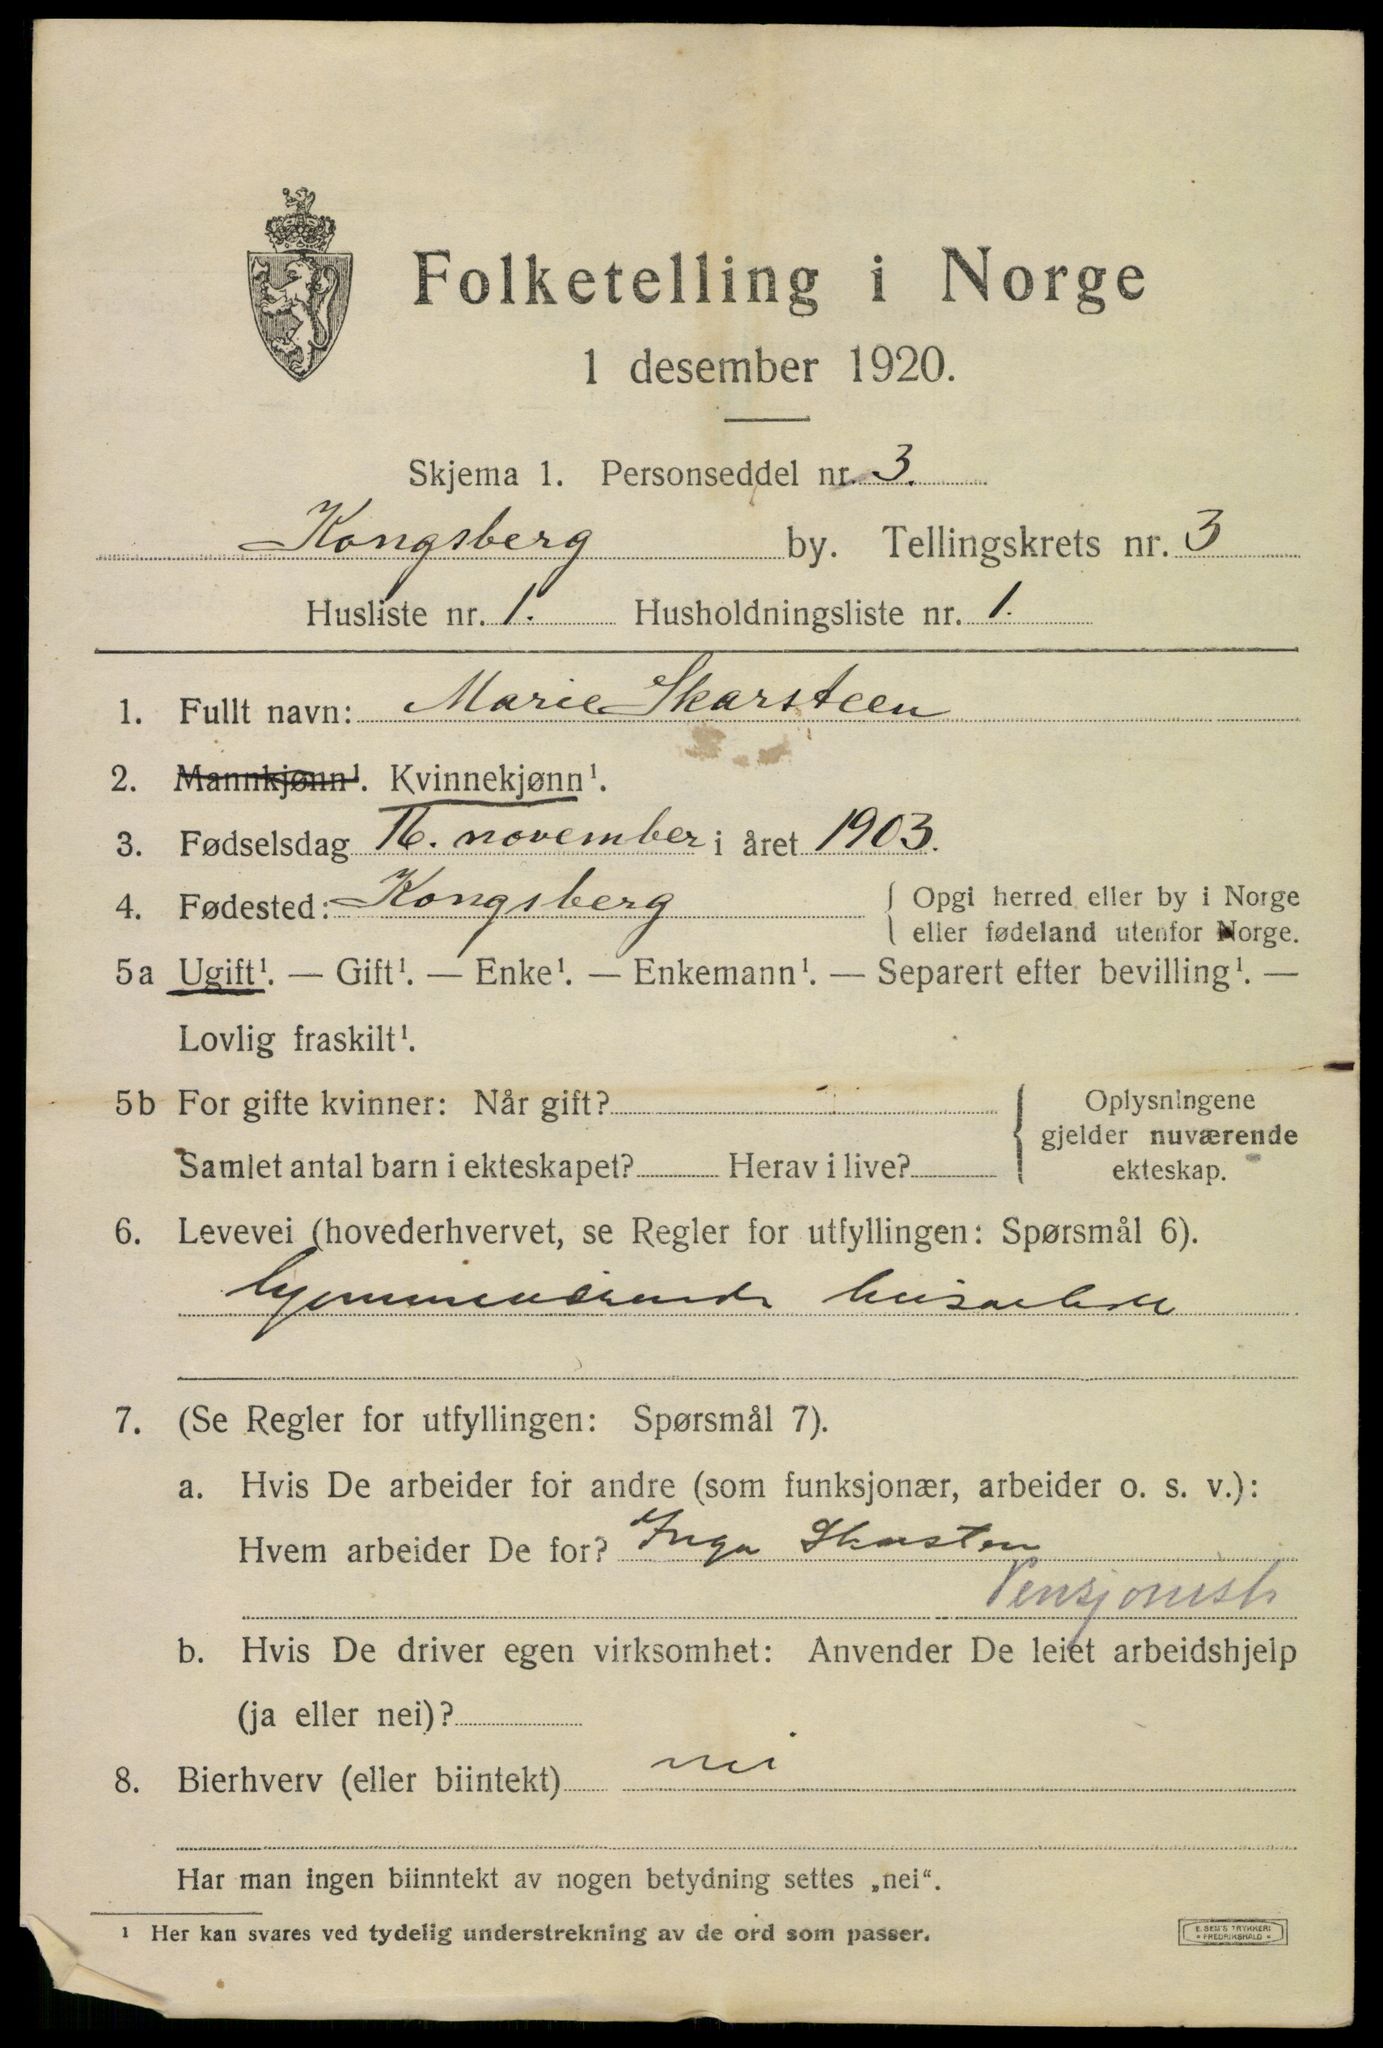 Folketelling i Norge
1 desember 1920.
Skjema 1. Personseddel nr. 3.
Kongsberg by. Tellingskrets nr. 3
Husliste nr. 1. Husholdningsliste nr. 1.
1. Fullt navn: Marie Skarsteen
2. Mannkjønn¹. Kvinnekjønn¹.
3. Fødselsdag 16. november i året 1903.
4. Fødested: Kongsberg { Opgi herred eller by i Norge
eller fødeland utenfor Norge.
5a Ugift¹. — Gift¹. — Enke¹. — Enkemann¹. — Separert efter bevilling¹. —
Lovlig fraskilt¹.
5b For gifte kvinner: Når gift? { Oplysningene
gjelder nuværende
Samlet antal barn i ekteskapet? Herav i live?
ekteskap.
6. Levevei (hovederhvervet, se Regler for utfyllingen: Spørsmål 6).
hjemmeværende
7. (Se Regler for utfyllingen: Spørsmål 7).
a. Hvis De arbeider for andre (som funksjonær, arbeider o. s. v.):
Hvem arbeider De for? Inga Skarsten
Pensjonist
b. Hvis De driver egen virksomhet: Anvender De leiet arbeidshjelp
(ja eller nei)?
8. Bierhverv (eller biintekt) nei
Har man ingen biinntekt av nogen betydning settes „nei“.
¹ Her kan svares ved tydelig understrekning av de ord som passer.
E. SEM'S TRYKKERI
* FREDRIKSHALD *